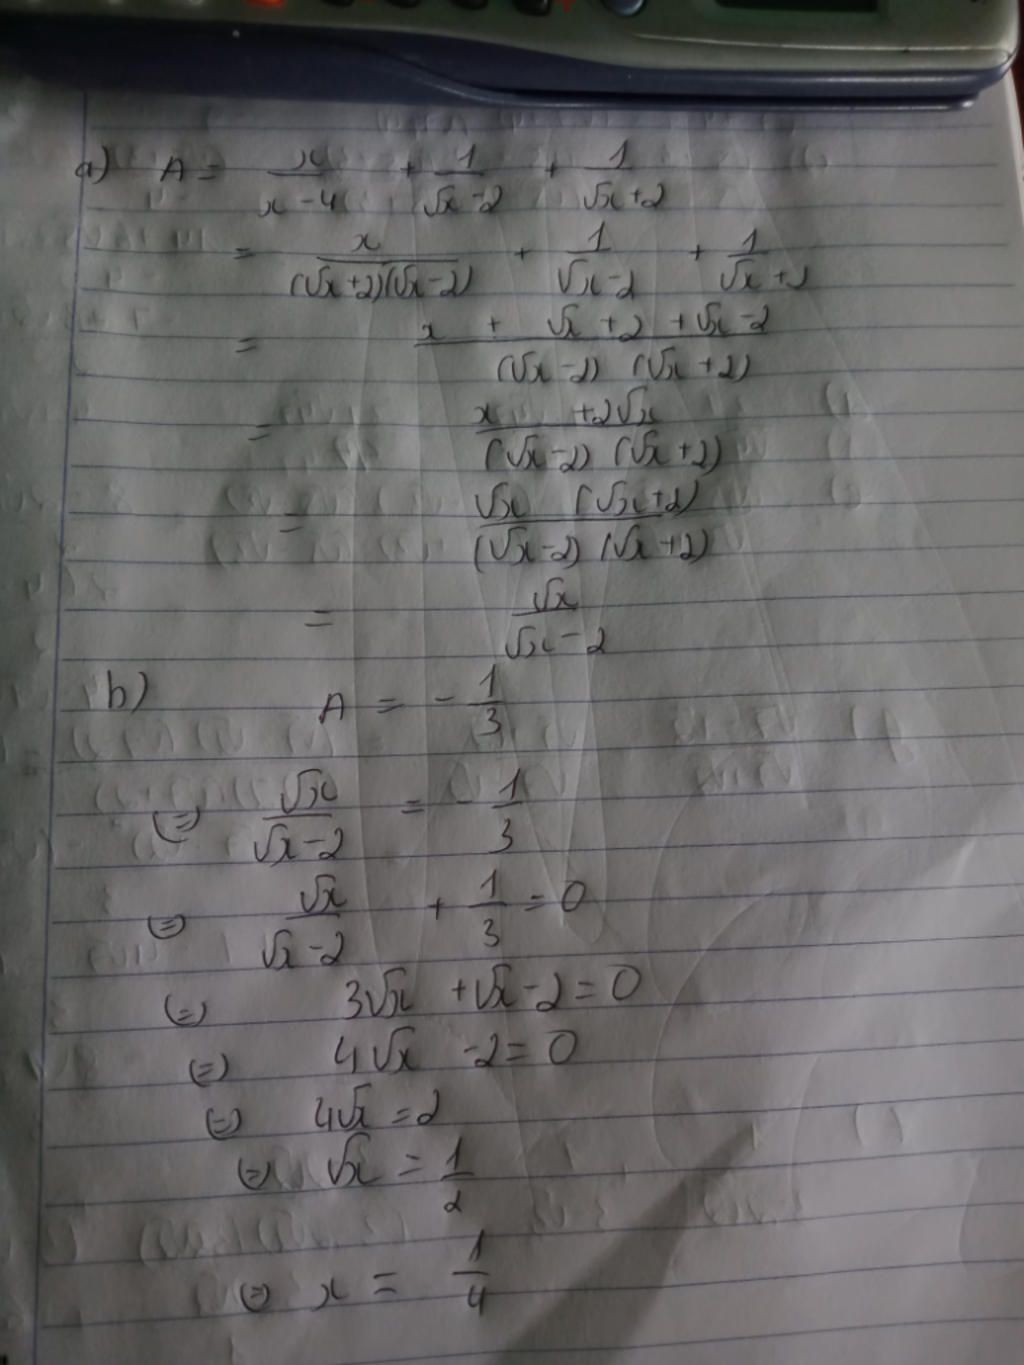 a) A = x/(x-4) + 1/(√x-2) + 1/(√x+2)
= x/((√x+2)(√x-2)) + 1/(√x-2) + 1/(√x+2)
= (x + √x+2 +√x-2)/((√x-2) (√x+2))
= (x +2√x)/((√x-2) (√x+2))
= (√x (√x+2))/((√x-2) (√x+2))
= √x/(√x-2)
b) A = -1/3
(=) √x/(√x-2) = -1/3
(=) √x/(√x-2) + 1/3 = 0
(=) 3√x +√x-2=0
(=) 4√x -2=0
(=) 4√x =2
(=) √x = 1/2
(=) x = 1/4